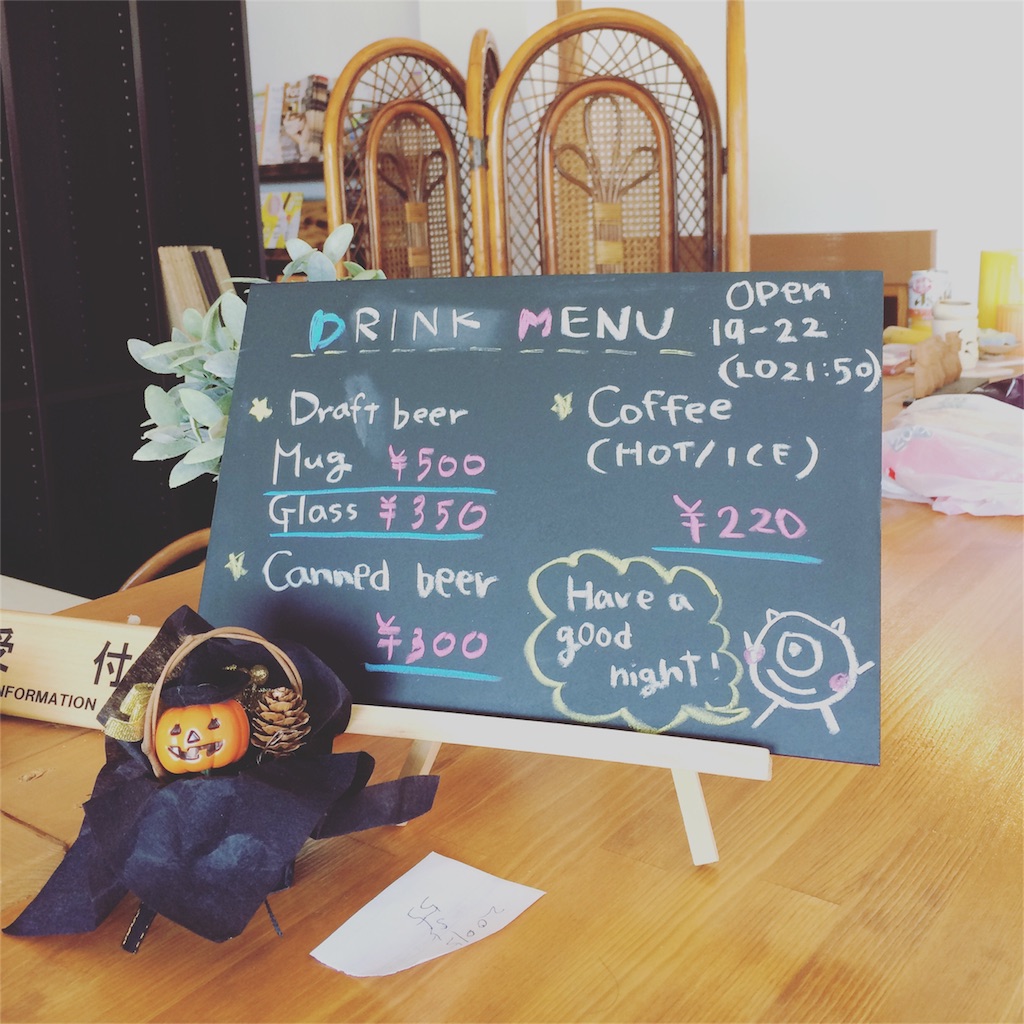 DRINK MENU
Open
19-22
(LO21:50)
Draft beer
Mug ¥500
Glass ¥350
Canned beer
¥300
Coffee
(HOT/ICE)
¥220
Have a
good
night!
受付
INFORMATION